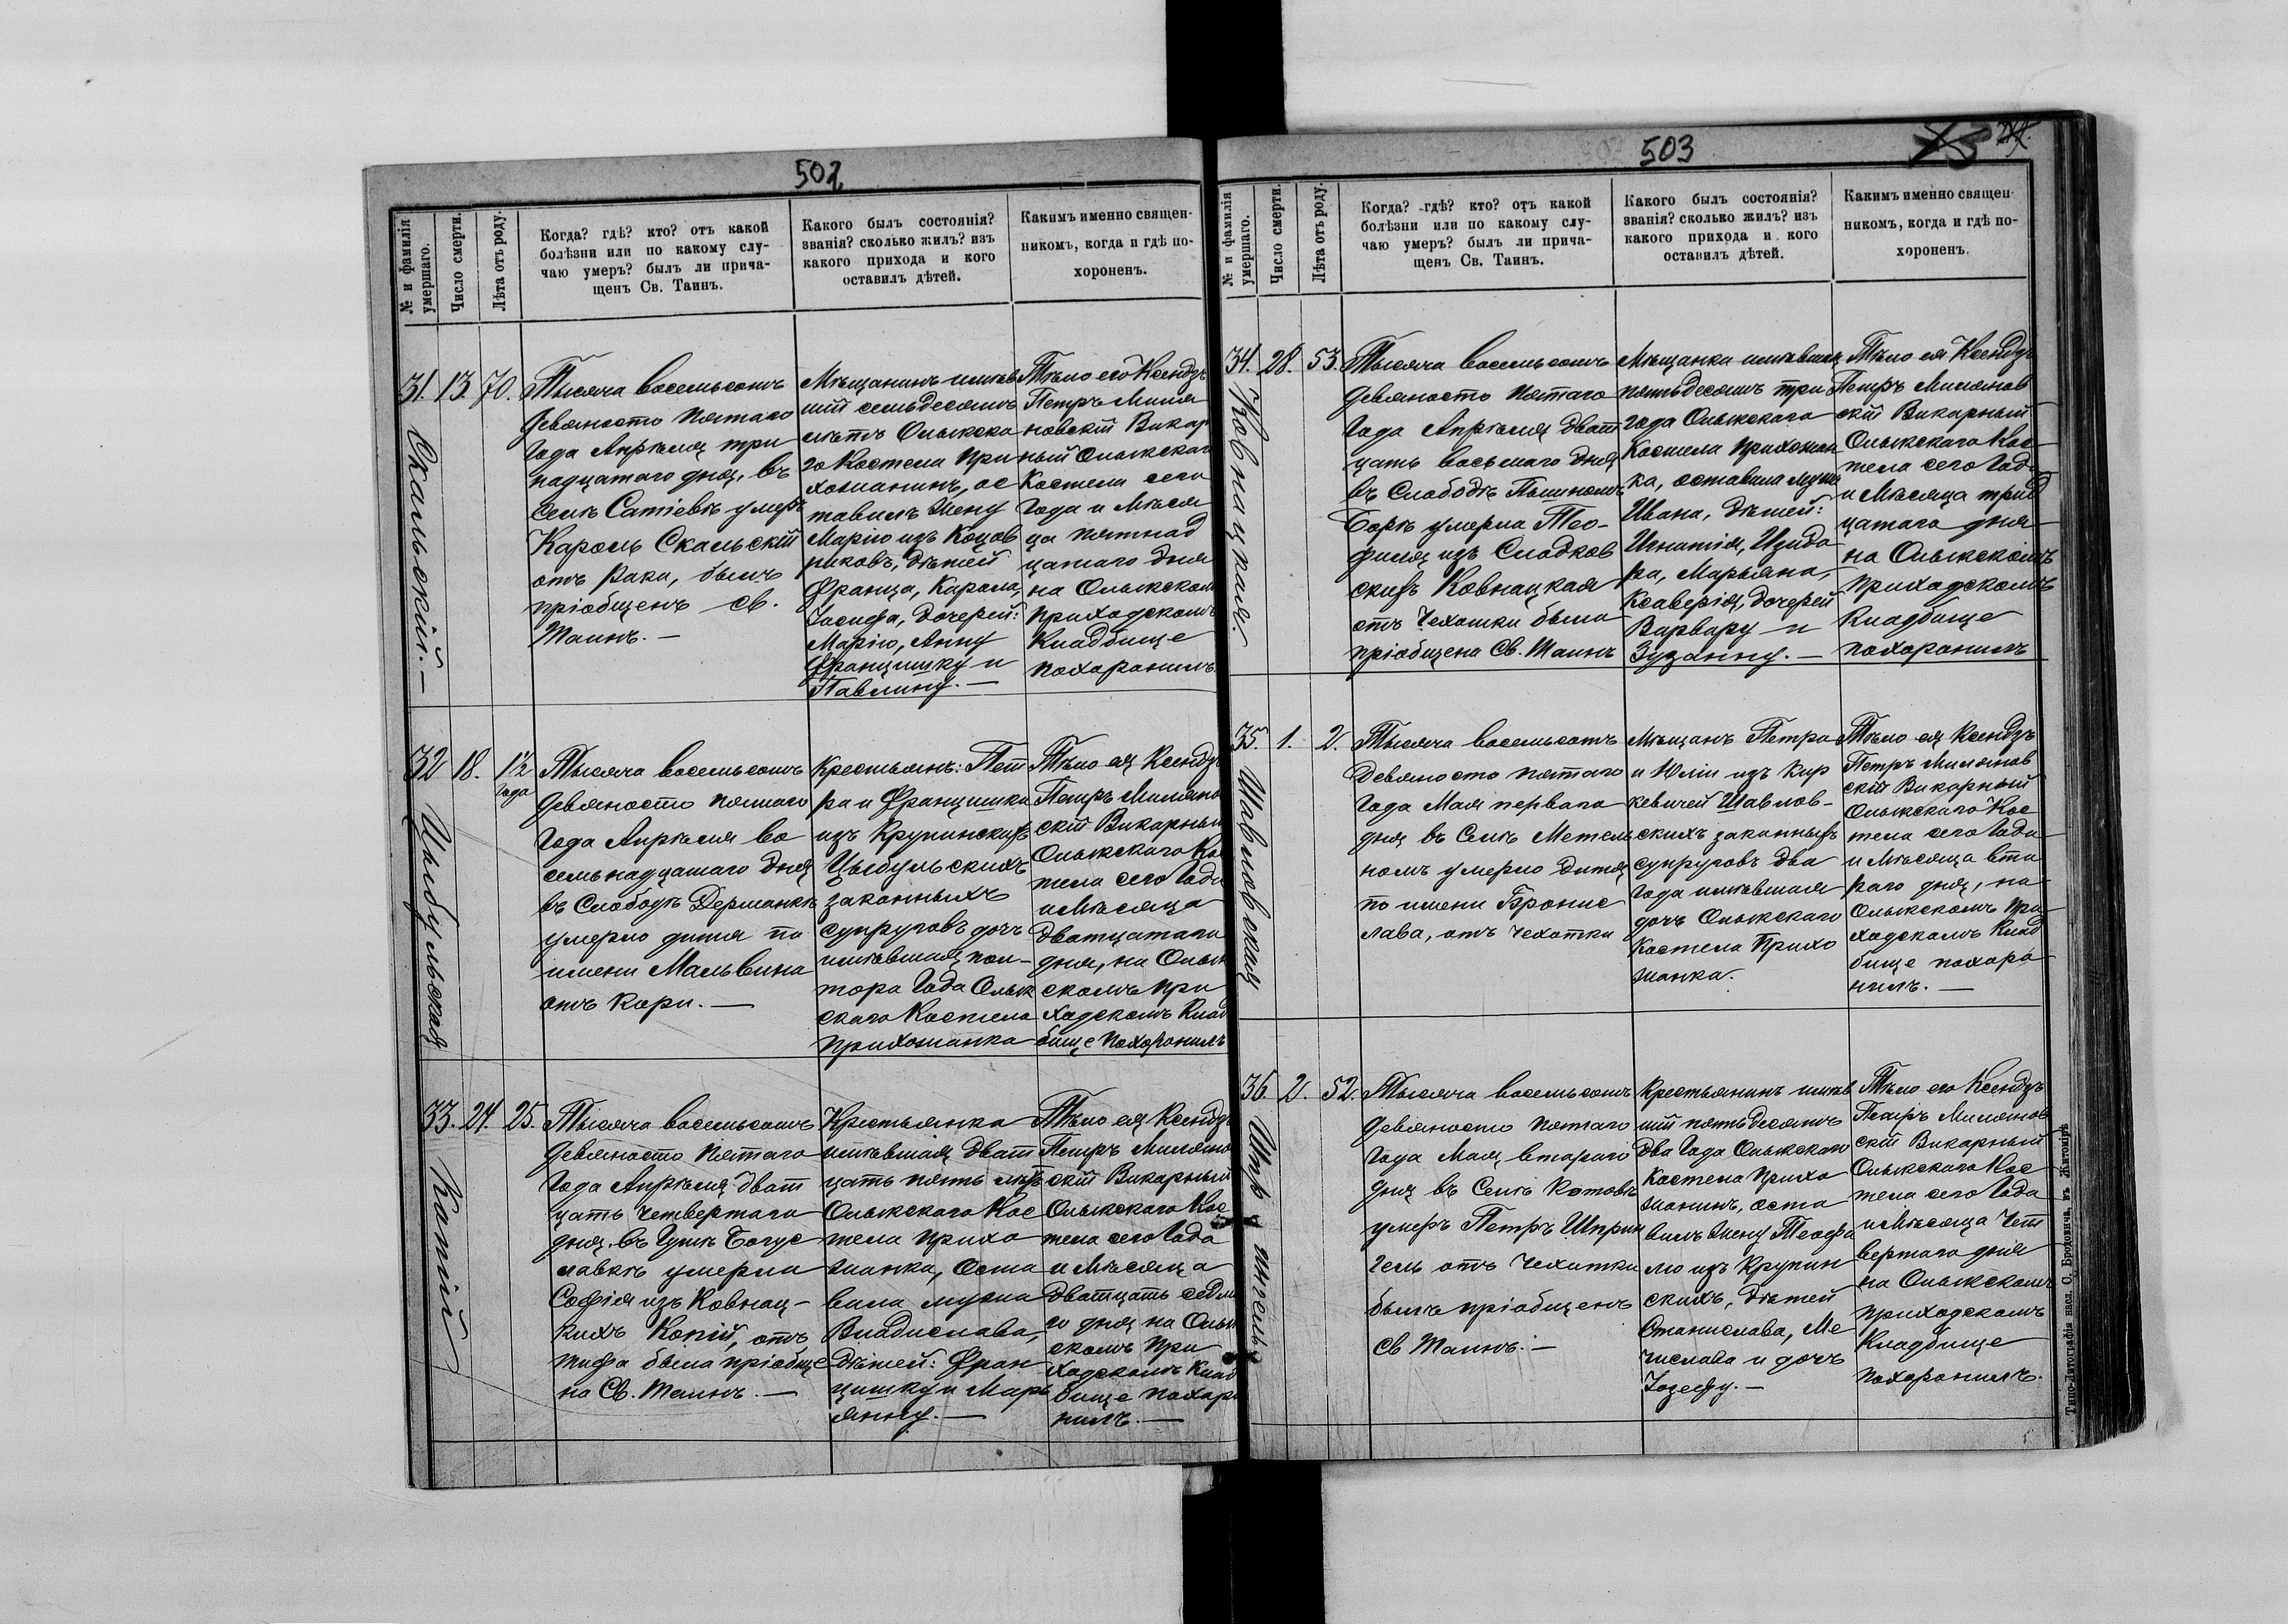 502
№ и фамилія умершаго.
Число смерти.
Лѣта отъ роду.
Когда? гдѣ? кто? отъ какой
болѣзни или по какому слу-
чаю умеръ? былъ ли прича-
щенъ Св. Таинъ.
Какого былъ состоянія?
званія? сколько жилъ? изъ
какого прихода и кого
оставилъ дѣтей.
Какимъ именно священ-
никомъ, когда и гдѣ по-
хороненъ.
31. 13. 70.
Скальскій. —
Тысяча восемьсотъ
девяносто пятаго
Года Апрѣля три
надцатаго дня, въ
Селѣ Сатіевкѣ умеръ
Кароль Скальскій
отъ рака, былъ
пріобщенъ св.
Таинъ. —
Мѣщанинъ имѣв
шій семьдесятъ
лѣтъ Олыкска
го Костела При
хожанинъ, ос
тавилъ жену
Марію изъ Коцов
никовъ, дѣтей
Франца, Карола,
Іосифа, дочерей:
Марію, Анну
Францишку и
Павлину. —
Тѣло его Ксендзъ
Петръ Миля
новскій Викар
ный Олыкскаго
Костела сего
Года и Мѣся
ца пятнад
цатаго дня
на Олыкскомъ
приходскомъ
Кладбище
похоронилъ
32 18. 1½ года
Цыбульская
Тысяча восемьсотъ
девяносто пятаго
Года Апрѣля во
семьнадцатаго дня
въ Слободѣ Держанкѣ
умерло дитя по
имени Мальвина
отъ кори. —
Крестьянъ: Пет
ра и Францишки
изъ Крупинскихъ
Цыбульскихъ
законныхъ
супруговъ дочь
имѣвшая пол-
тора Года Олык
скаго Костела
прихожанка
Тѣло ея Ксендзъ
Петръ Миляно
скій Викарный
Олыкскаго Ко
тела сего Года
и Мѣсяца
двадцатаго
дня, на Олык
скомъ при
ходскомъ Клад
бище похоронилъ
33. 24. 25.
Копій
Тысяча восемьсотъ
девяносто пятаго
Года Апрѣля двад
цать четвертаго
дня въ Гутѣ Богус
лавкѣ умерла
Софія изъ Ковнац-
кихъ Копій, отъ
тифа была пріобще
на Св. Таинъ. —
Крестьянка
имѣвшая двад
цать пять лѣтъ
Олыкскаго Кос
тела прихо
жанка, оста
вила мужа
Владислава,
дѣтей: Фран
цишку и Марь
янну. —
Тѣло ея Ксендзъ
Петръ Миляно
скій Викарный
Олыкскаго Кос
тела сего Года
и Мѣсяца
двадцать седьма
го дня на Олык
скомъ при
ходскомъ Клад
бище похоро
нилъ. —
503
№ и фамилія умершаго.
Число смерти.
Лѣта отъ роду.
Когда? гдѣ? кто? отъ какой
болѣзни или по какому слу-
чаю умеръ? былъ ли прича-
щенъ Св. Таинъ.
Какого былъ состоянія?
званія? сколько жилъ? изъ
какого прихода и кого
оставилъ дѣтей.
Какимъ именно священ-
никомъ, когда и гдѣ по-
хороненъ.
34. 28. 53.
Ковнацкая.
Тысяча восемьсотъ
девяносто пятаго
Года Апрѣля двад
цать восьмаго дня
въ Слободѣ
Борѣ умерла Тео-
филя изъ Сладков
скихъ Ковнацкая
отъ Чехотки была
пріобщена Св. Таинъ
Мѣщанка имѣвшая
пятьдесятъ три
года Олыкскаго
Костела прихожан
ка, оставила мужа
Ивана, дѣтей:
Игнатія, Изидо
ра, Марьяна,
Ксаверія, дочерей
Варвару и
Зузанну. —
Тѣло ея Ксендзъ
Петръ Милянов
скій Викарный
Олыкскаго Кос
тела сего Года
и Мѣсяца трид
цатаго дня
на Олыкскомъ
приходскомъ
Кладбище
похоронилъ
35. 1. 2.
Шавловская
Тысяча восемьсотъ
девяносто пятаго
Года Мая перваго
дня въ Селѣ Метель
номъ умерло дитя
по имени Бронис
лава, отъ чехотки
Мѣщанъ Петра
и Юліи изъ Кир
кевичей Шавлов-
скихъ законныхъ
супруговъ два
Года имѣвшая
дочь Олыкскаго
Костела Прихо
жанка.
Тѣло ея Ксендзъ
Петръ Милянов
скій Викарный
Олыкскаго Кос
тела сего Года
и Мѣсяца вто
раго дня, на
Олыкскомъ при
ходскомъ Клад
бище похоро
нилъ. —
36. 2. 52.
Шпрингель
Тысяча восемьсотъ
девяносто пятаго
Года Мая втораго
дня въ Селѣ Котовѣ
умеръ Петръ Шприн
гель отъ Чехотки
былъ пріобщенъ
Св Таинъ. —
Крестьянинъ имѣв
шій пятьдесятъ
два Года Олыкскаго
Костела прихо
жанинъ, оста
вилъ жену Теофи
лю изъ Крупин
скихъ, дѣтей
Станислава, Ме
числава и дочь
Іозефу. —
Тѣло его Ксендзъ
Петръ Милянов
скій Викарный
Олыкскаго Кос
тела сего Года
и Мѣсяца Чет
вертаго дня
на Олыкскомъ
приходскомъ
Кладбище
похоронилъ.
Типо-Литографія насл. О. Бродовича, въ Житомірѣ